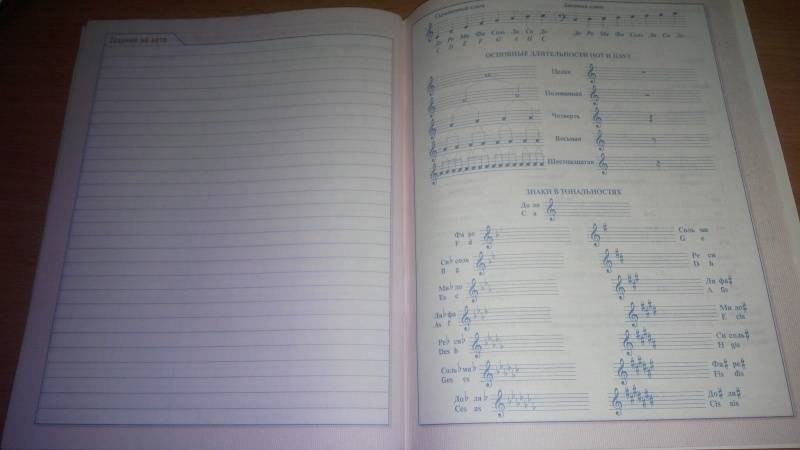 Задания на лето
Скрипичный ключ Басовый ключ
До Ре Ми Фа Соль Ля Си До До Ре Ми Фа Соль Ля Си До
C D E F G A H C
ОСНОВНЫЕ ДЛИТЕЛЬНОСТИ НОТ И ПАУЗ
Целая
Половинная
Четверть
Восьмая
Шестнадцатая
ЗНАКИ В ТОНАЛЬНОСТЯХ
До ля
C a
Фа ре Соль ми
F d G e
Си♭ соль Ре си
B g D h
Ми♭ до Ля фа♯
Es c A fis
Ля♭ фа Ми до♯
As f E cis
Ре♭ си♭ Си соль♯
Des b H gis
Соль♭ ми♭ Фа♯ ре♯
Ges es Fis dis
До♭ ля♭ До♯ ля♯
Ces as Cis ais